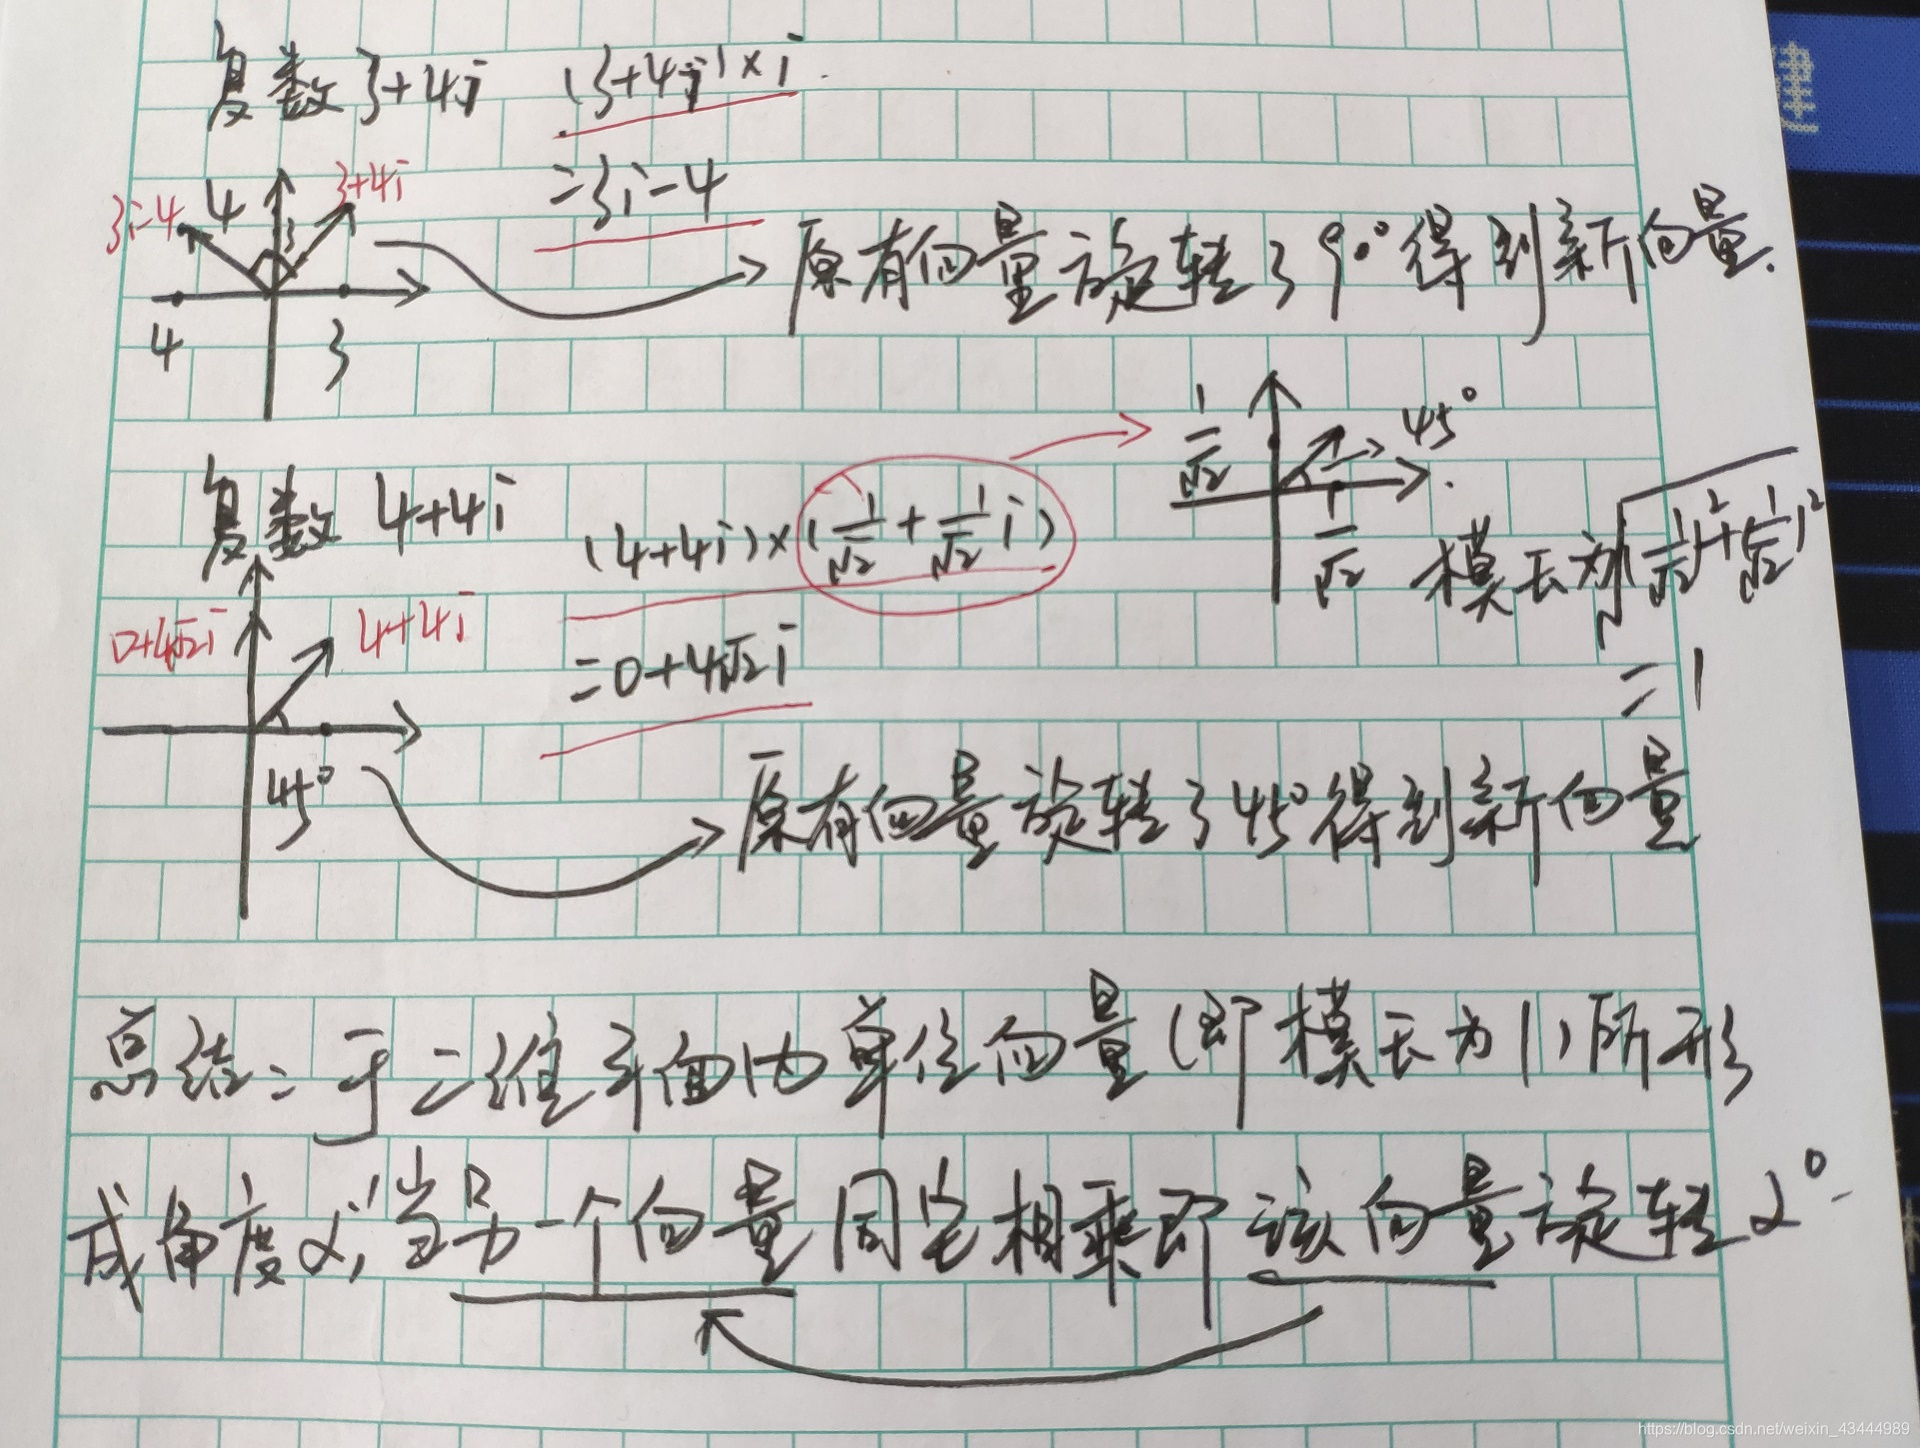 复数3+4i (3+4i)×i
=3i-4
3i-4 4 3+4i
4 3
原有向量旋转了90°得到新向量.
复数 4+4i (4+4i)×(1/√2+1/√2 i)
1/√2 45°
1/√2
模长为√(1/√2)²+(1/√2)²
=1
0+4√2i 4+4i
=0+4√2i
45°
原有向量旋转了45°得到新向量
总结:于二维平面内单位向量(即模长为1)所形
成角度α,当另一个向量同它相乘即该向量旋转α°
https://blog.csdn.net/weixin_43444989